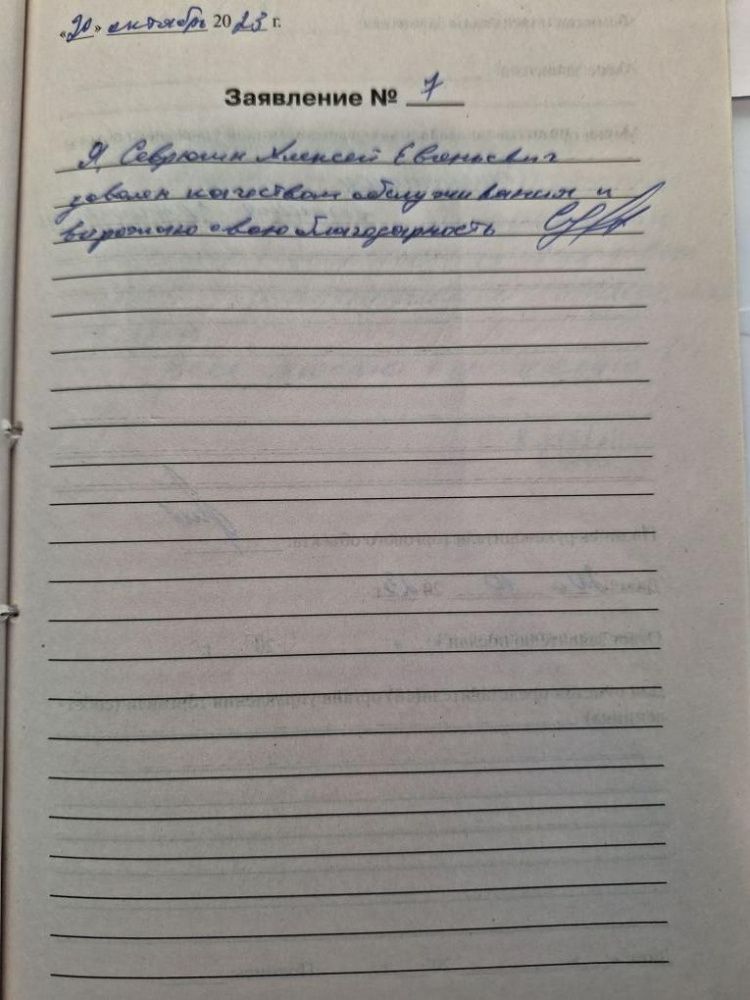 «20» октябрь 2023 г.
Заявление № 7
Я, Севрюгин Алексей Евгеньевич
доволен качеством обслуживания и
выражаю свою благодарность